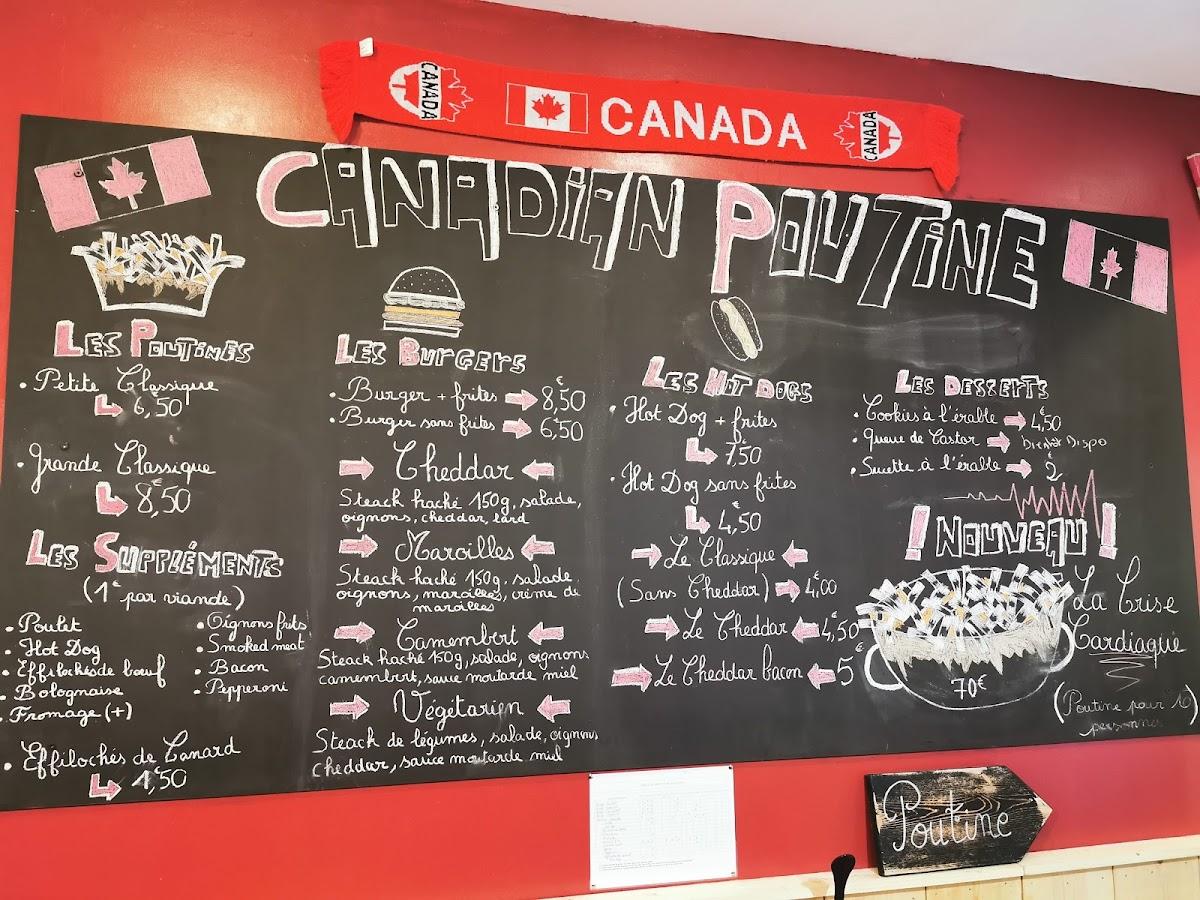 CANADA
CANADA
CANADA
CANADIAN POUTINE
LES POUTINES
• Petite Classique
6,50
• Grande Classique
8,50
LES SUPPLÉMENTS
(1€ par viande)
• Poulet
• Hot Dog
• Effilochés de bœuf
• Bolognaise
• Fromage (+)
• Oignons frits
• Smoked meat
• Bacon
• Pepperoni
• Effilochés de Canard
4€50
LES BURGERS
• Burger + frites 8€50
• Burger sans frites 6€50
Cheddar
Steack haché 150g, salade,
oignons, cheddar, lard
Maroilles
Steack haché 150g, salade,
oignons, maroilles, crème de
maroilles
Camembert
Steack haché 150g, salade, oignons
camembert, sauce moutarde miel
Végétarien
Steack de légumes, salade, oignons
cheddar, sauce moutarde miel
LES HOT DOGS
• Hot Dog + frites
7€50
• Hot Dog sans frites
4,50
Le Classique
(Sans Cheddar) 4€00
Le Cheddar 4€50
Le Cheddar bacon 5€
LES DESSERTS
• Cookies à l'érable 4€50
• Queue de Castor Bientôt Dispo
• Sucette à l'érable 2€
! NOUVEAU !
La Crise
Cardiaque
70€
(Poutine pour 10
personnes)
Poutine